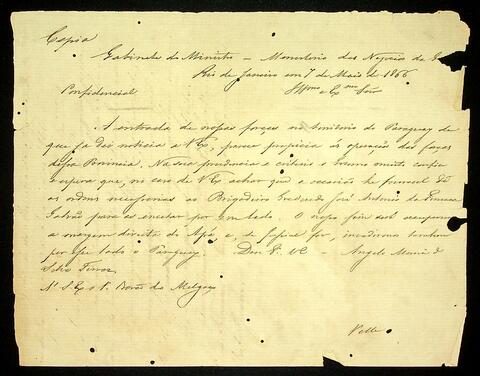 Copia
Gabinete do Ministro – Ministerio dos Negocios da G
Rio de Janeiro em 7 de Maio de 1866
Confidencial Illmo e Exmo Snr
A entrada de nossas forças no territorio do Paraguay de
que já dei noticia a VEx, parece propicia ás operações das forças
dessa Provincia. Na sua prudencia e criterio o Governo muito confia
e espera que, no caso de VEx achar que a occasião he favoravel dê
as ordens necessarias ao Brigadeiro Graduado José Antonio da Fonseca
Galvão para as encetar por esse lado. O nosso fim será occupar
a margem direita do Apa e, se possivel for, invadirmos tambem
por esse lado o Paraguay. Deos G. a VE – Angelo Moniz da
Silva Ferraz
A S. Ex. o Sr. Barão de Melgaço